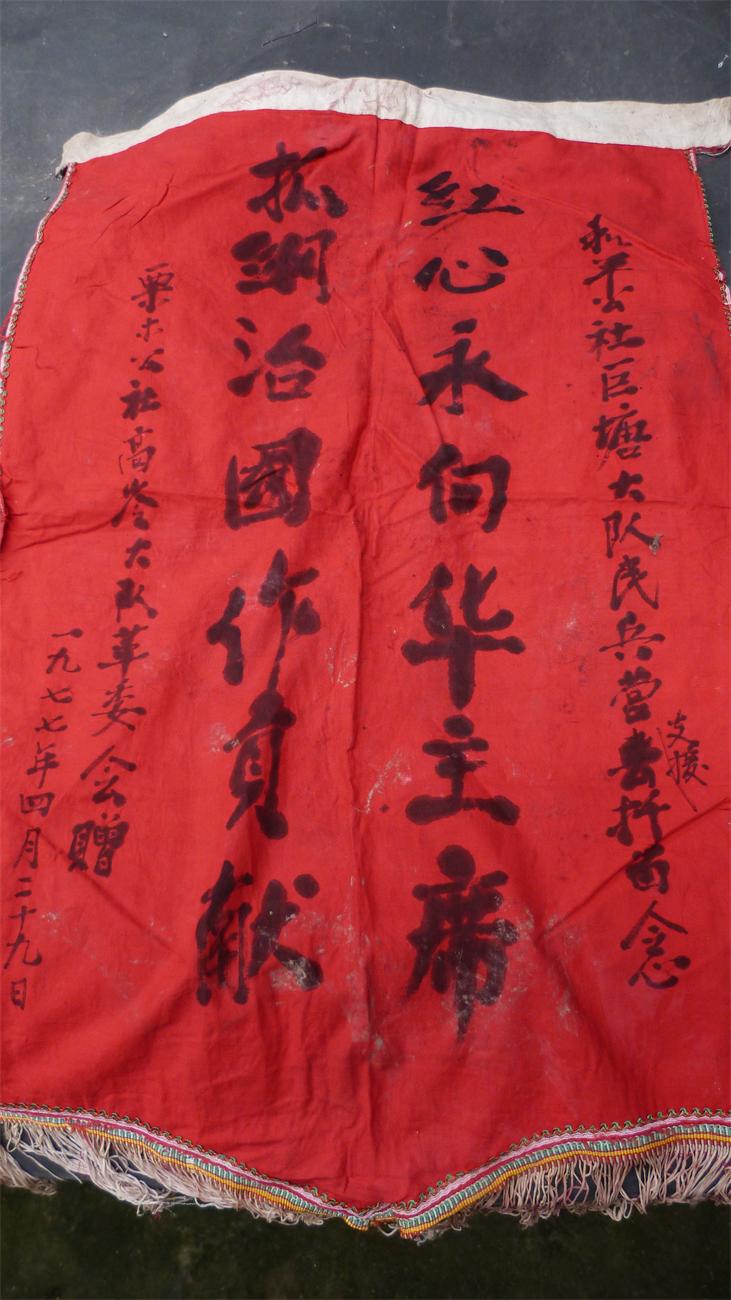 和平公社巨塘大队民兵营春留念
支援
红心永向华主席
抓纲治國作貢献
栗木公社高岑大队革委会赠
一九七七年四月二十九日